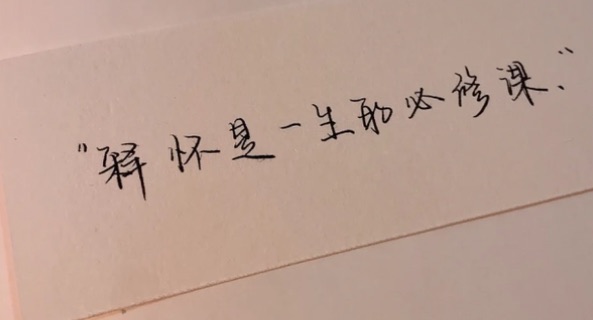 "释怀是一生的必修课."